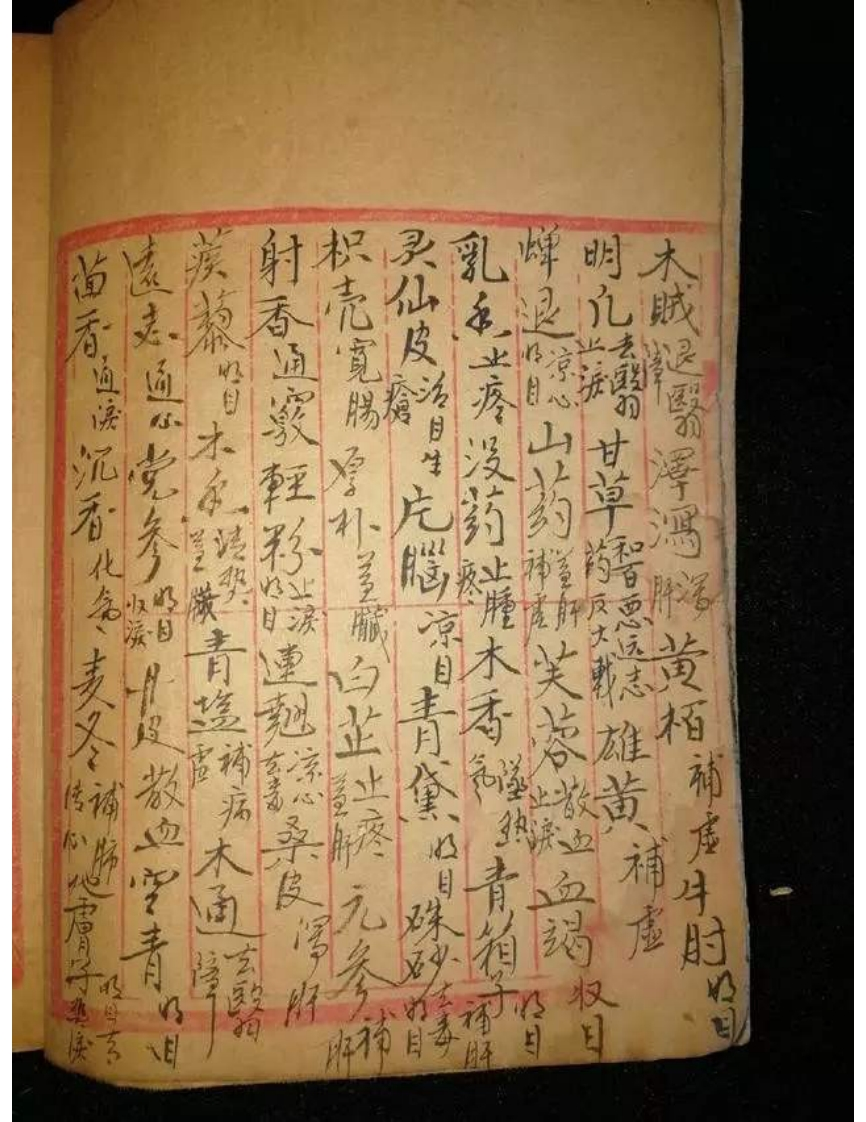 木贼退翳障 澤瀉瀉肝 黄栢補虚 牛肘明目
明凡去翳止淚 甘草和百药恶远志反大戟 雄黄補虚
蟬退凉心明目 山药益肝補虚 芙蓉散血止淚 血竭收目
乳香止疼 没药止腫疼 木香墜熱氣 青箱子明目補肝
灵仙皮治目生瘡 片腦凉目 青黛明目 硃砂去毒明目
枳壳寬腸 厚朴益臟 白芷止疼益肝 元参補肝
射香通竅 輕粉止淚明目 連翹凉心去毒 桑皮瀉肝
蒺藜明目 木香清热益臟 青塩補病虚 木通去翳障
遠志通心 党参明目收淚 丹皮散血 空青明目
茴香通淚 沉香化氣 麦冬補肺清心 地膚子明目去淚